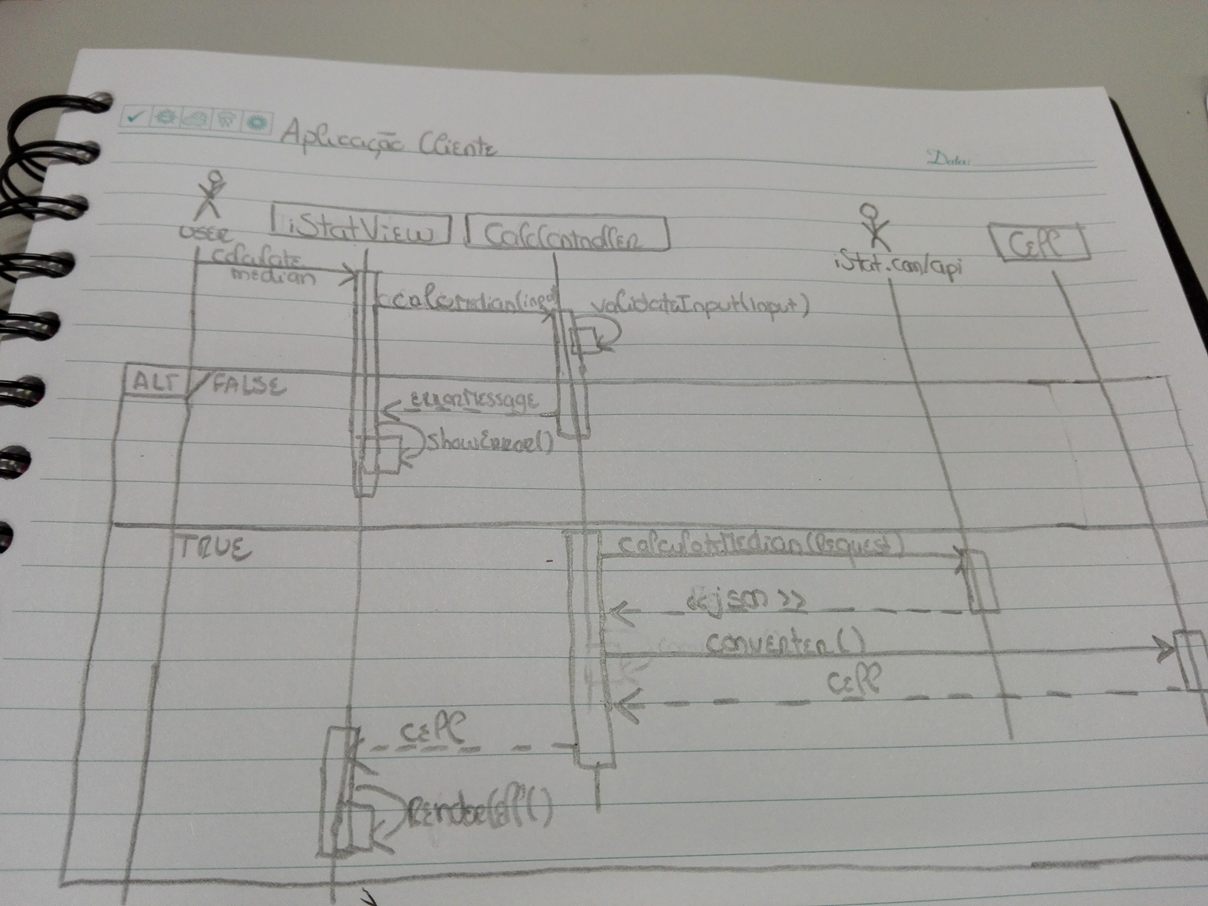 Aplicação Cliente
Data:
USER
iStatView
CalcController
iStat.com/api
Cell
calculate
median
validateInput(Input)
ALT
FALSE
errorMessage
showError()
TRUE
calculateMedian(Request)
<<json>>
converter()
cell
cell